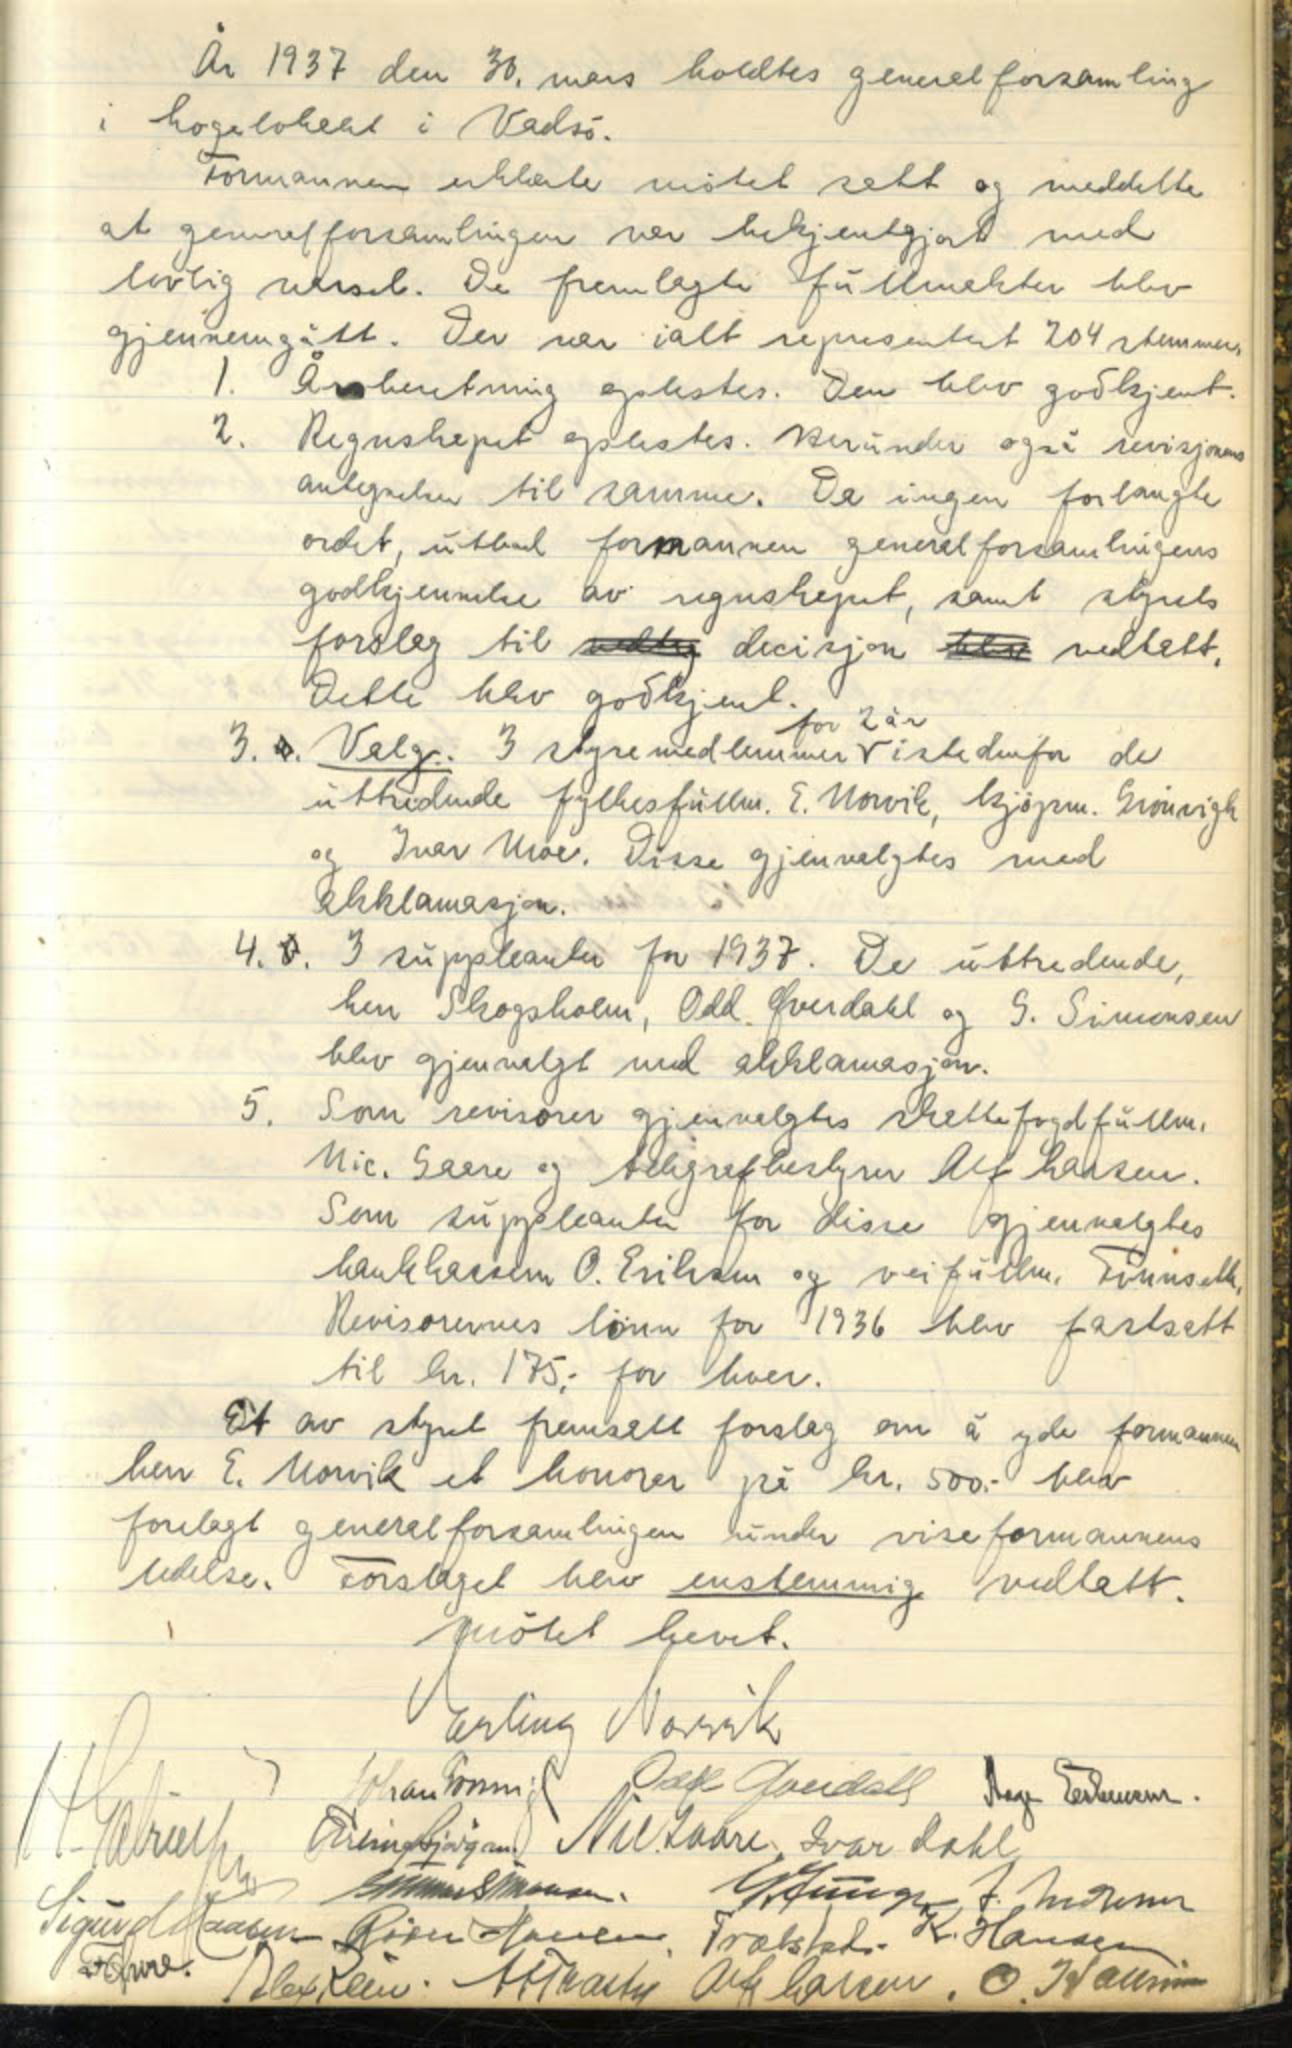 År 1937 den 30. mars holdtes generalforsamling
i logelokalet i Vadsö.
Formannen erklærte mötet satt og meddelte
at generalforsamlingen var bekjentgjort med
lovlig varsel. De fremlagte fullmakter blev
gjennemgått. Der var ialt representert 204 stemmer.
1. Årsberetning oplestes. Den blev godkjent.
2. Regnskapet oplestes. Herunder også revisjonens
antegnelser til samme. Da ingen forlangte
ordet, utbad formannen generalforsamlingens
godkjennelse av regnskapet, samt styrets
forslag til decisjon vedtatt.
Dette blev godkjent.
3. Valg. 3 styremedlemmer for 2 år istedenfor de
uttredende fylkesfullm. E. Norvik, kjöpm. Grönvigh
og Ivar Moe. Disse gjenvalgtes med
akklamasjon.
4. 3 suppleanter for 1937. De uttredende,
herr Skogsholm, Odd Qverdahl og G. Simonsen
blev gjenvalgt med akklamasjon.
5. Som revisorer gjenvalgtes skattefogdfullm.
Nic. Gaare og telegrafbestyrer Alf Larsen.
Som suppleanter for disse gjenvalgtes
bankkasserer O. Eriksen og veifullm. Tönseth.
Revisorernes lönn for 1936 blev fastsatt
til kr. 175,- for hver.
Et av styret fremsatt forslag om å yde formannen
herr E. Norvik et honorar på kr. 500.- blev
forelagt generalforsamlingen under viseformannens
ledelse. Forslaget blev enstemmig vedtatt.
Mötet hevet.
Erling Norvik
Johan Odd Qverdahl Aage
Nic. Gaare. Ivar Dahl
Simonsen.
Sigurd K. Hansen
Alf Larsen. O.